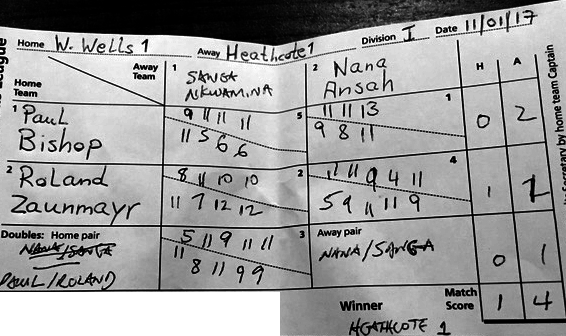 League
Home W. Wells 1 Away Heathcote 1 Division I Date 11/01/17
Away Team
Home Team
1 SANGA NKWAMINA
2 Nana Ansah
H A
1 Paul Bishop
9 11 11 11 5
11 5 6 6
11 11 13 1
9 8 11
0 2
2 Roland Zaunmayr
8 11 10 10 2
11 7 12 12
11 11 9 4 11 4
5 9 11 11 9
1
Doubles: Home pair
NANA/SANGA
PAUL/ROLAND
5 11 9 11 11 3
11 8 11 9 9
Away pair
NANA/SANGA
0 1
Winner Match Score 1 4
HEATHCOTE 1
Secretary by home team Captain